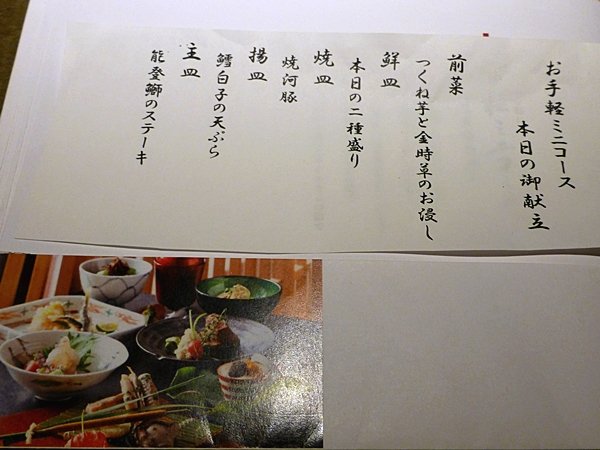 お手軽ミニコース
本日の御献立
前菜
つくね芋と金時草のお浸し
鮮皿
本日の二種盛り
焼皿
焼河豚
揚皿
鱈白子の天ぷら
主皿
能登鰤のステーキ